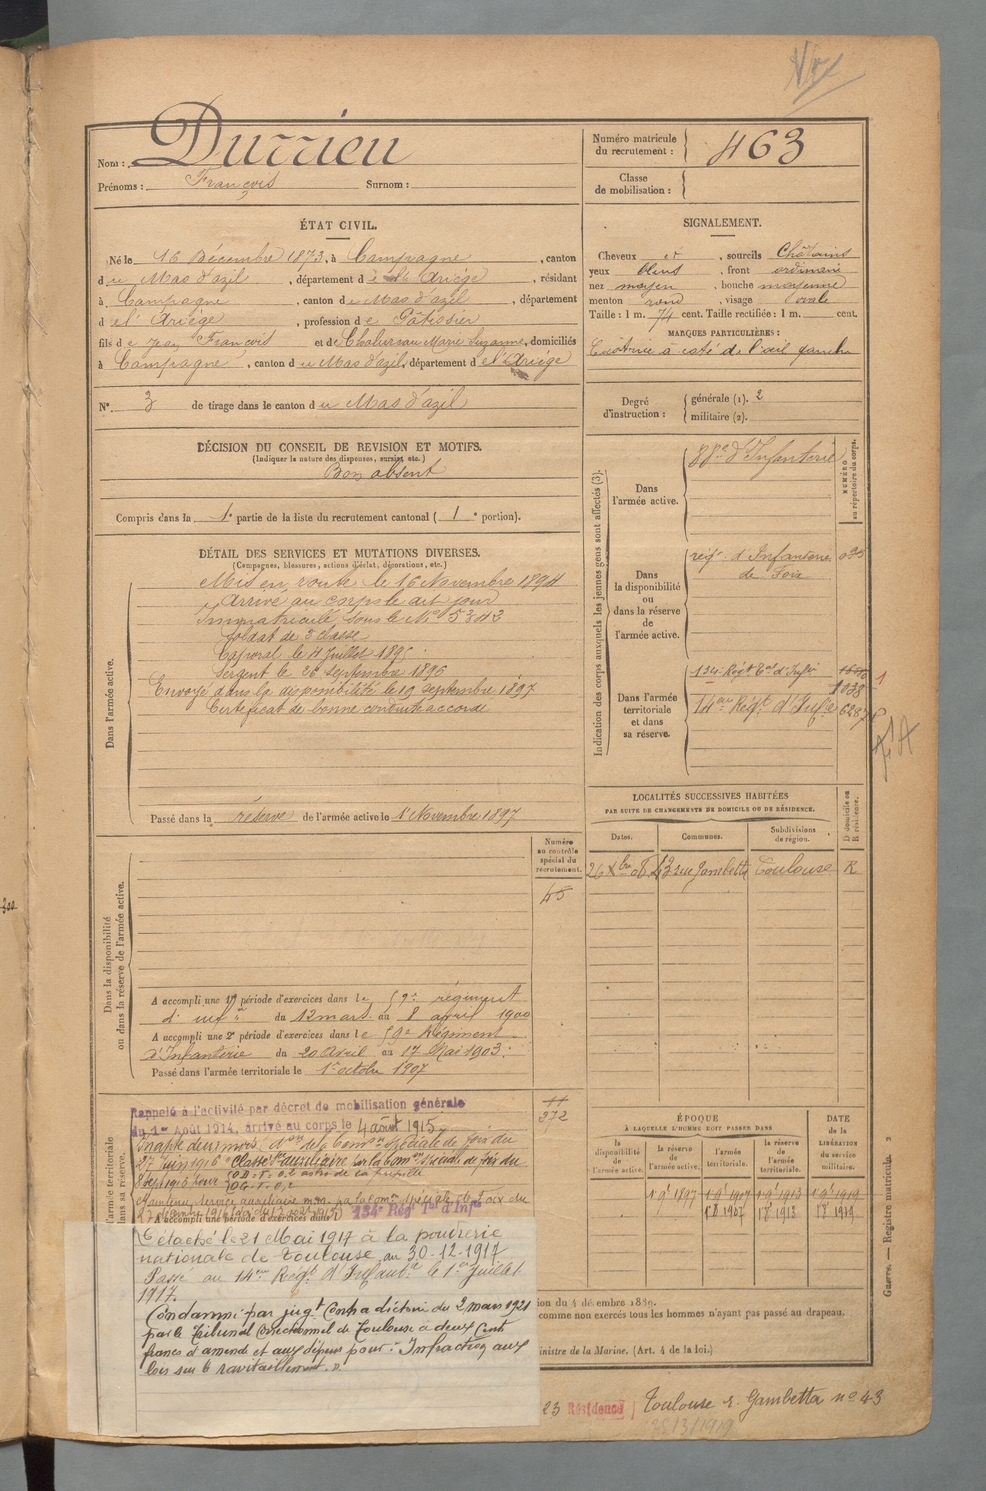 Nom : Durrieu
Prénoms : François Surnom :
Numéro matricule du recrutement : 463
Classe de mobilisation :
ÉTAT CIVIL.
Né le 16 Décembre 1873, à Campagne, canton
du Mas d'azil, département de l'Ariège, résidant
à Campagne, canton du Mas d'azil, département
de l'Ariège, profession de Pâtissier
fils de Jean François et de Marie Suzanne, domiciliés
à Campagne, canton du Mas d'azil, département de l'Ariège
N° 3 de tirage dans le canton du Mas d'azil
SIGNALEMENT.
Cheveux et, sourcils Châtains
yeux bleus, front ordinaire
nez moyen, bouche moyenne
menton rond, visage ovale
Taille : 1 m. 74 cent. Taille rectifiée : 1 m. cent.
MARQUES PARTICULIÈRES :
Cicatrice à coté de l'œil gauche
Degré d'instruction : générale (1). 2
militaire (2).
DÉCISION DU CONSEIL DE REVISION ET MOTIFS.
(Indiquer la nature des dispenses, sursis, etc.)
Bon absent
Compris dans la 1e partie de la liste du recrutement cantonal (1e portion).
DÉTAIL DES SERVICES ET MUTATIONS DIVERSES.
(Campagnes, blessures, actions d'éclat, décorations, etc.)
Dans l'armée active.
Mis en route le 16 Novembre 1894
Arrivé au corps le dit jour
Immatriculé sous le N° 5343
Soldat de 2e classe
Caporal le 4 Juillet 1895
Sergent le 26 Septembre 1896
Envoyé dans la disponibilité le 19 Septembre 1897
Certificat de bonne conduite accordé
Passé dans la réserve de l'armée active le 1er Novembre 1897
Indication des corps auxquels les jeunes gens sont affectés (3).
NUMÉRO au répertoire du corps.
Dans l'armée active.
88e d'Infanterie
Dans la disponibilité ou dans la réserve de l'armée active.
reg. d'Infanterie
de Foix
Dans l'armée territoriale et dans sa réserve.
134e Régt Tal d'Infie
1038
14me Régt d'Infie 6287
LOCALITÉS SUCCESSIVES HABITÉES
PAR SUITE DE CHANGEMENTS DE DOMICILE OU DE RÉSIDENCE.
Dates. Communes. Subdivisions de région. D domicile ou R résidence.
26 Xbre 08 43 rue Gambetta Toulouse R
Dans la disponibilité ou dans la réserve de l'armée active.
Numéro au contrôle spécial du recrutement.
45
A accompli une 1re période d'exercices dans le 59e régiment
d'infie du 12 mars au 8 avril 1900
A accompli une 2e période d'exercices dans le 59e Régiment
d'Infanterie du 20 Avril au 17 Mai 1903.
Passé dans l'armée territoriale le 1er octobre 1907
l'armée territoriale
dans sa réserve.
372
Rappelé à l'activité par décret de mobilisation générale
du 1er Août 1914, arrivé au corps le 4 août 1915
Inapte deux mois, Don de la Comson Spéciale de Foix du
27 Juin 1916. Classé Sce auxiliaire par la Comon Spéciale de Foix du
Maintenu service auxiliaire par la Com. Spéciale de Foix du
134e Régt Tal d'Infie
A accompli une période d'exercices dans l
Détaché le 21 Mai 1917 à la poudrerie
nationale de Toulouse au 30-12-1917
Passé au 14me Régt d'Infantie le 1er Juillet
1917.
Condamné par jugt Contradictoire du 2 mars 1921
par le Tribunal Correctionnel de Toulouse à deux cent
francs d'amende et aux dépens pour : Infraction aux
lois sur le ravitaillement.
ÉPOQUE
À LAQUELLE L'HOMME DOIT PASSER DANS
la disponibilité de l'armée active. la réserve de l'armée active. l'armée territoriale. la réserve de l'armée territoriale.
DATE de la LIBÉRATION du service militaire.
1 9e 1897 1 9e 1907 1 9e 1913 1 9e 1919
1 8 1907 1 8 1913 1 8 1919
comme non exercés tous les hommes n'ayant pas passé au drapeau.
inistre de la Marine. (Art. 4 de la loi.)
Guerre. — Registre matricule. 3
23 Résidence Toulouse r. Gambetta n° 43
25/3/1919